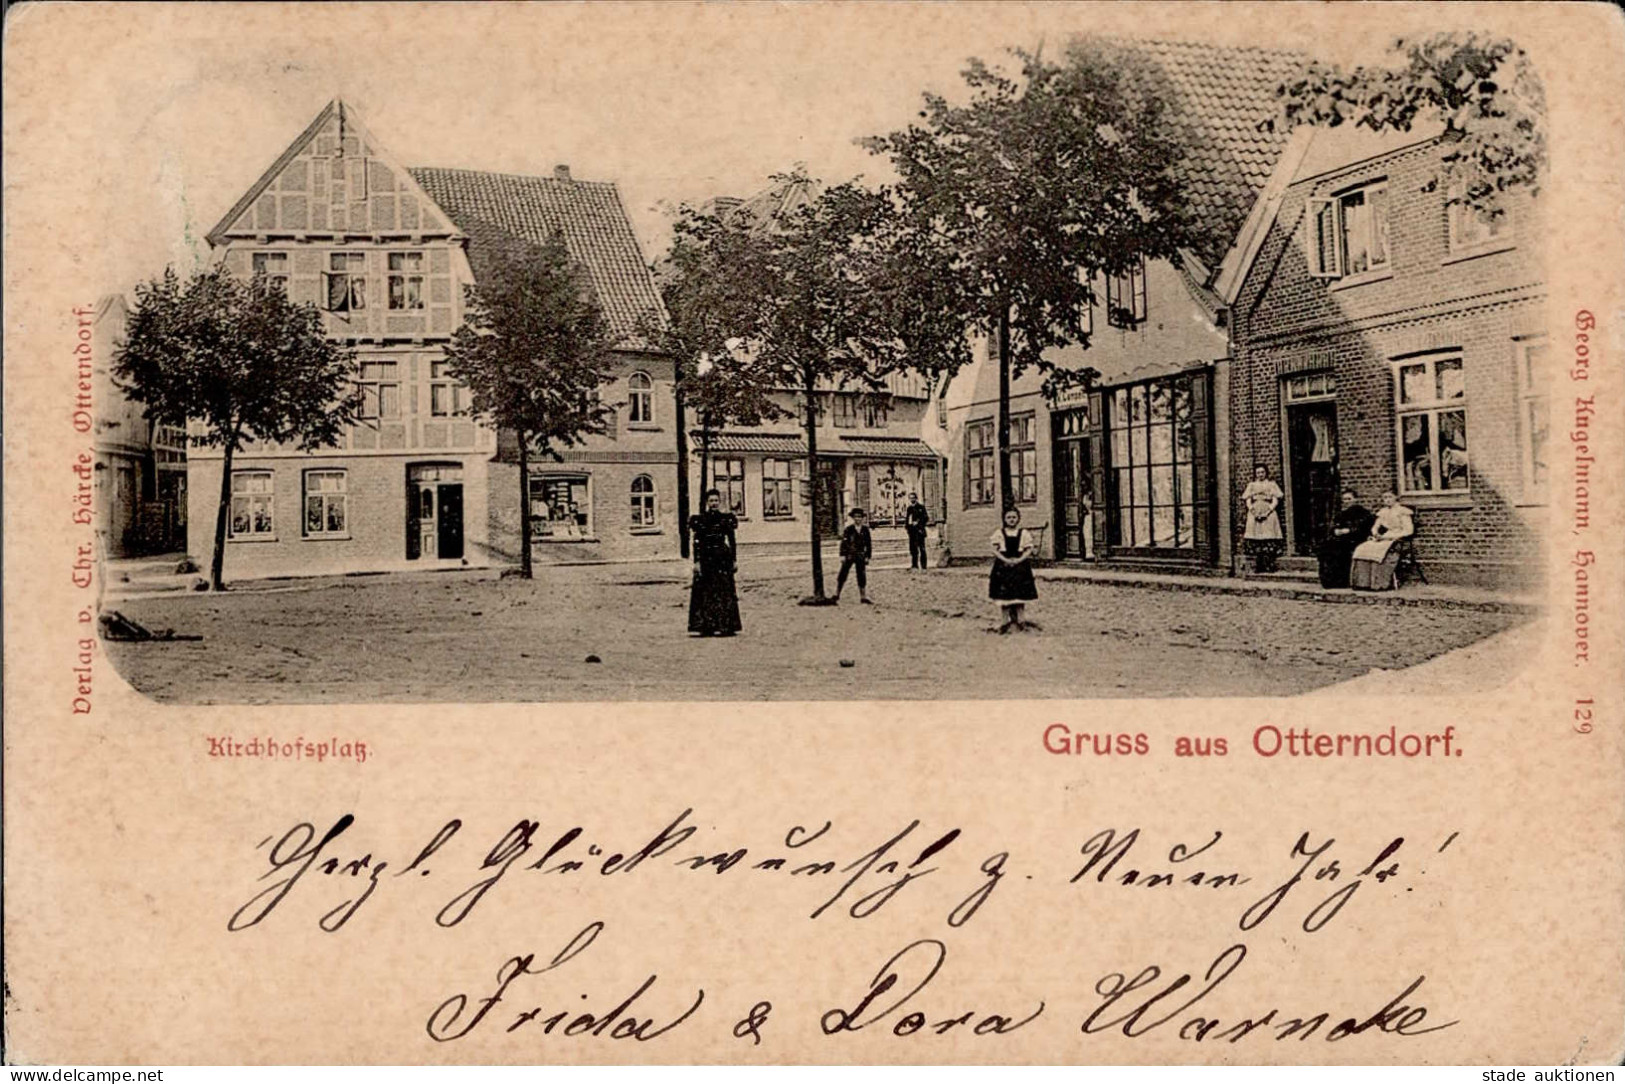 Verlag v. Chr. Härcke, Otterndorf.
Georg Kugelmann, Hannover. 129
Kirchhofsplatz.
Gruss aus Otterndorf.
Herzl. Glückwunsch z. Neuen Jahr!
Frida & Dora Warncke
www.delcampe.net
stade auktionen